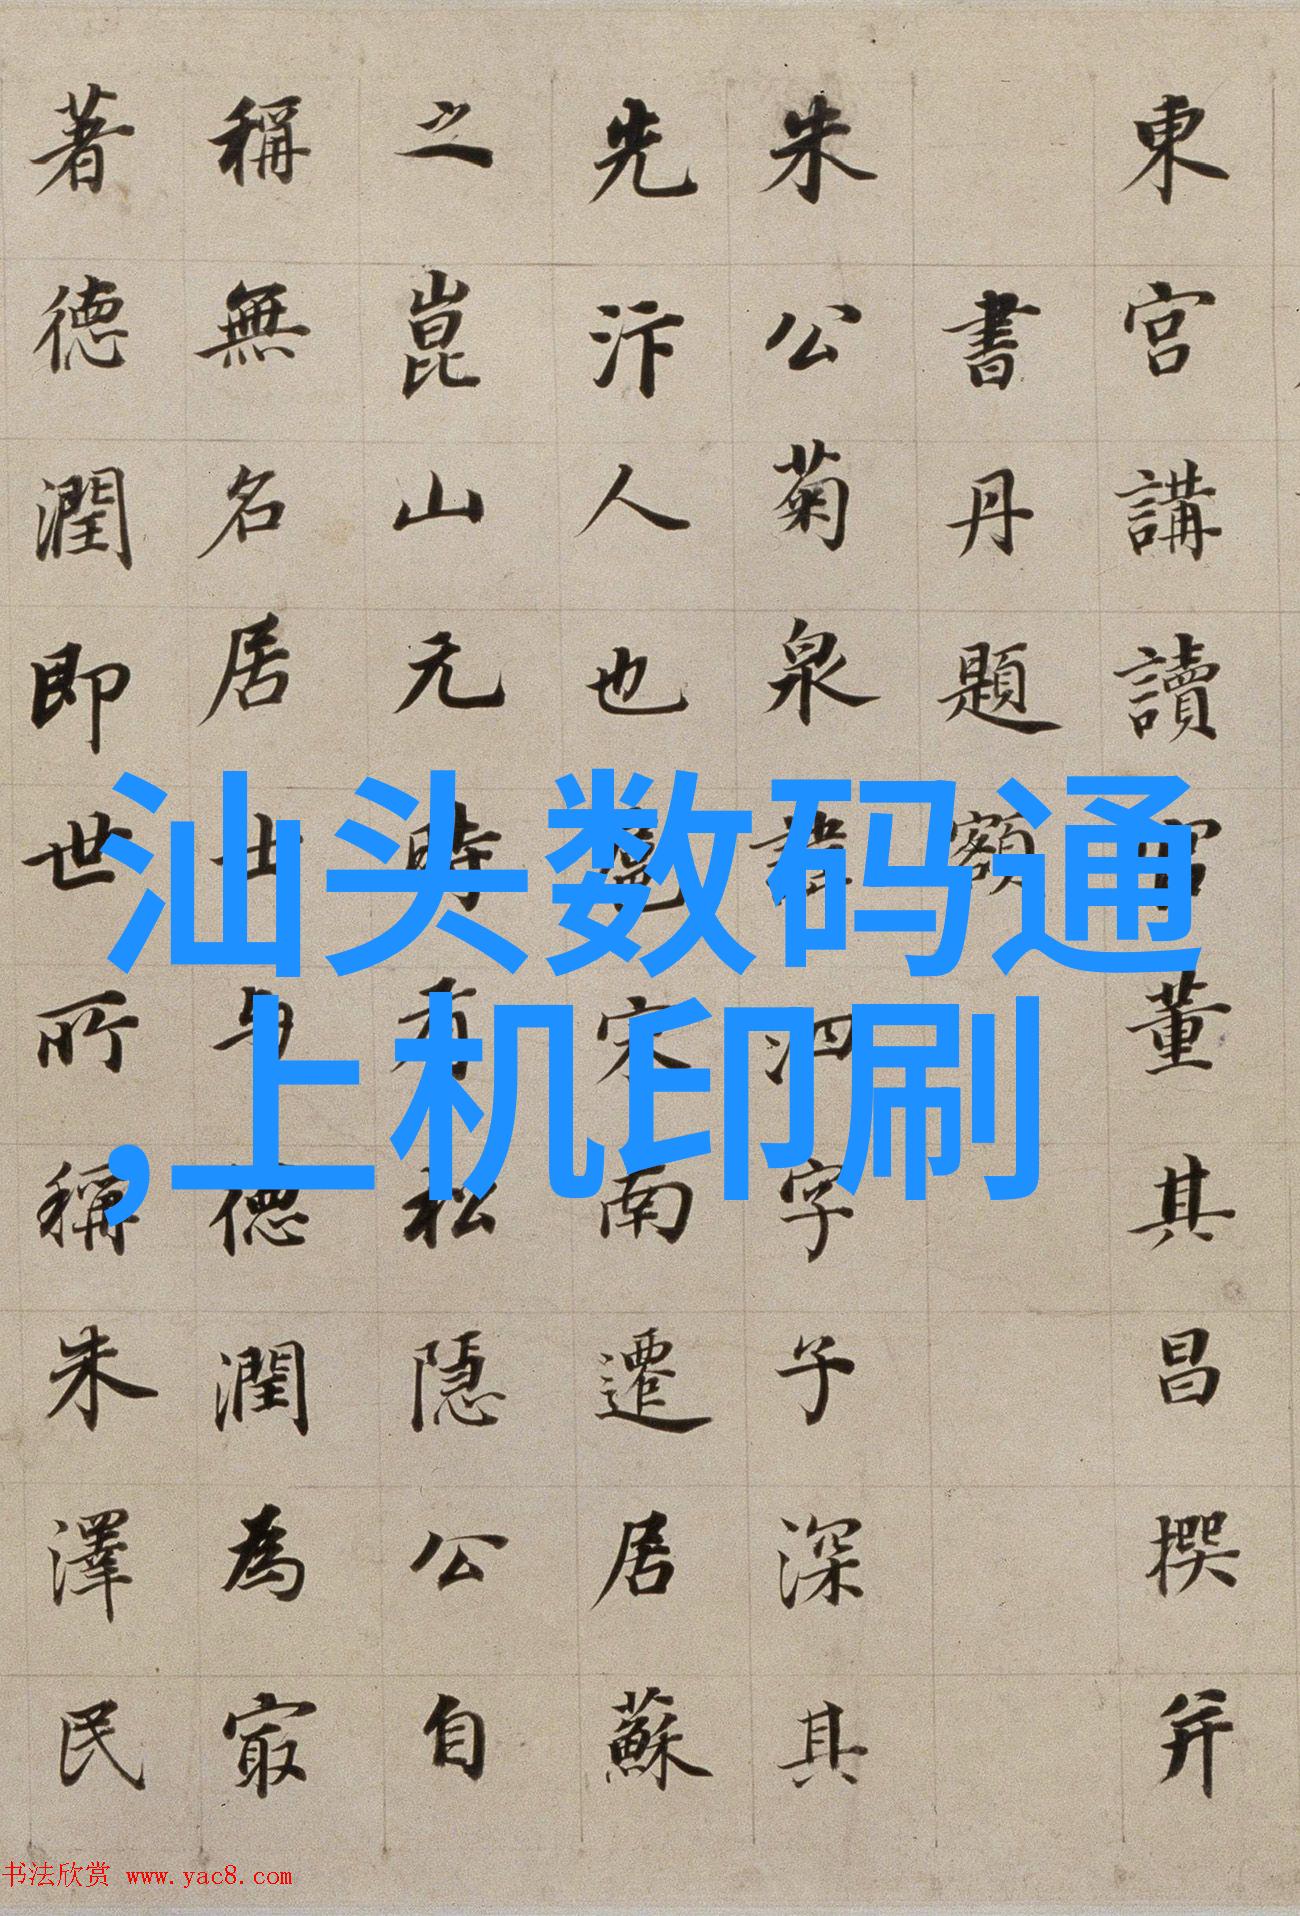 東宮講讀官董其昌撰并
書丹題額
朱公菊泉諱泗字子深其
先汴人也扈宋南遷居蘇
之崑山元時有松隱公自
稱無名居士与德潤為冣
著德潤即世所稱朱澤民
汕头数码通
,上机印刷
书法欣赏 www.yac8.com